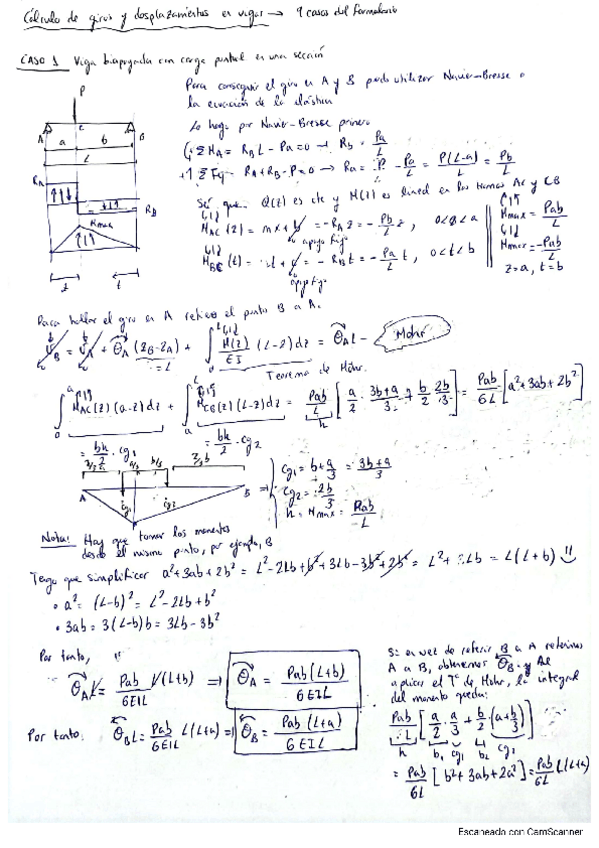 Cálculo de giros y desplazamientos en vigas → 9 casos del formulario
CASO 1 Viga biapoyada con carga puntual en una sección
Para conseguir el giro en A y B puedo utilizar Navier-Bresse o
la ecuación de la elástica
P
Lo hago por Navier-Bresse primero
A c B
a b
L
Σ M_A = R_B L - Pa = 0 → R_b = Pa/L
+↑ Σ Fy = R_A + R_B - P = 0 → R_a = P - Pa/L = P(L-a)/L = Pb/L
R_A
R_B
Sé que: Q(z) es cte y M(z) es lineal en los tramos AC y CB
M_AC(z) = mx + b = -R_A z = -Pb/L z, 0<z<a
apoyo fijo
M_BC(t) = = -R_B t = -Pa/L t, 0<t<b
M max = Pab/L
M max = -Pab/L
z=a, t=b
M max
z t
Para hallar el giro en A refiero el punto B a A.
V_B = V_A + θ_A (z_B - z_A) + ∫ M(z)/EI (L-z) dz = θ_A L - Mohr
= L
Teorema de Mohr.
∫ M_AC(z) (a-z) dz + ∫ M_CB(z) (L-z) dz = Pab/L [a/2 · 3b+a/3 + b/2 · 2b/3] = Pab/6L [a²+3ab+2b²]
h
= bh/2 · cg1 = bh/2 · cg2
2/3 a a/3 b/3 2/3 b
A B
cg1 cg2
cg1 = b + a/3 = 3b+a/3
cg2 = 2b/3
h = M max = Pab/L
Nota: Hay que tomar los momentos
desde el mismo punto, por ejemplo, B
Tengo que simplificar a²+3ab+2b² = L²-2Lb+b²+3Lb-3b²+2b² = L²+Lb = L(L+b) !!
• a² = (L-b)² = L²-2Lb+b²
• 3ab = 3(L-b)b = 3Lb-3b²
Por tanto,
θ_A L = Pab/6EIL L(L+b) ⇒ θ_A = Pab(L+b)/6EIL
Por tanto: θ_B L = Pab/6EIL L(L+a) ⇒ θ_B = Pab(L+a)/6EIL
Si en vez de referir B a A referimos
A a B, obtenemos θ_B. y Al
aplicar el Tª de Mohr, la integral
del momento queda:
Pab/L [a/2 · a/3 + b/2 · (a+b/3)]
h b1 cg1 b2 cg2
= Pab/6L [b²+3ab+2a²] = Pab/6L L(L+a)
Escaneado con CamScanner